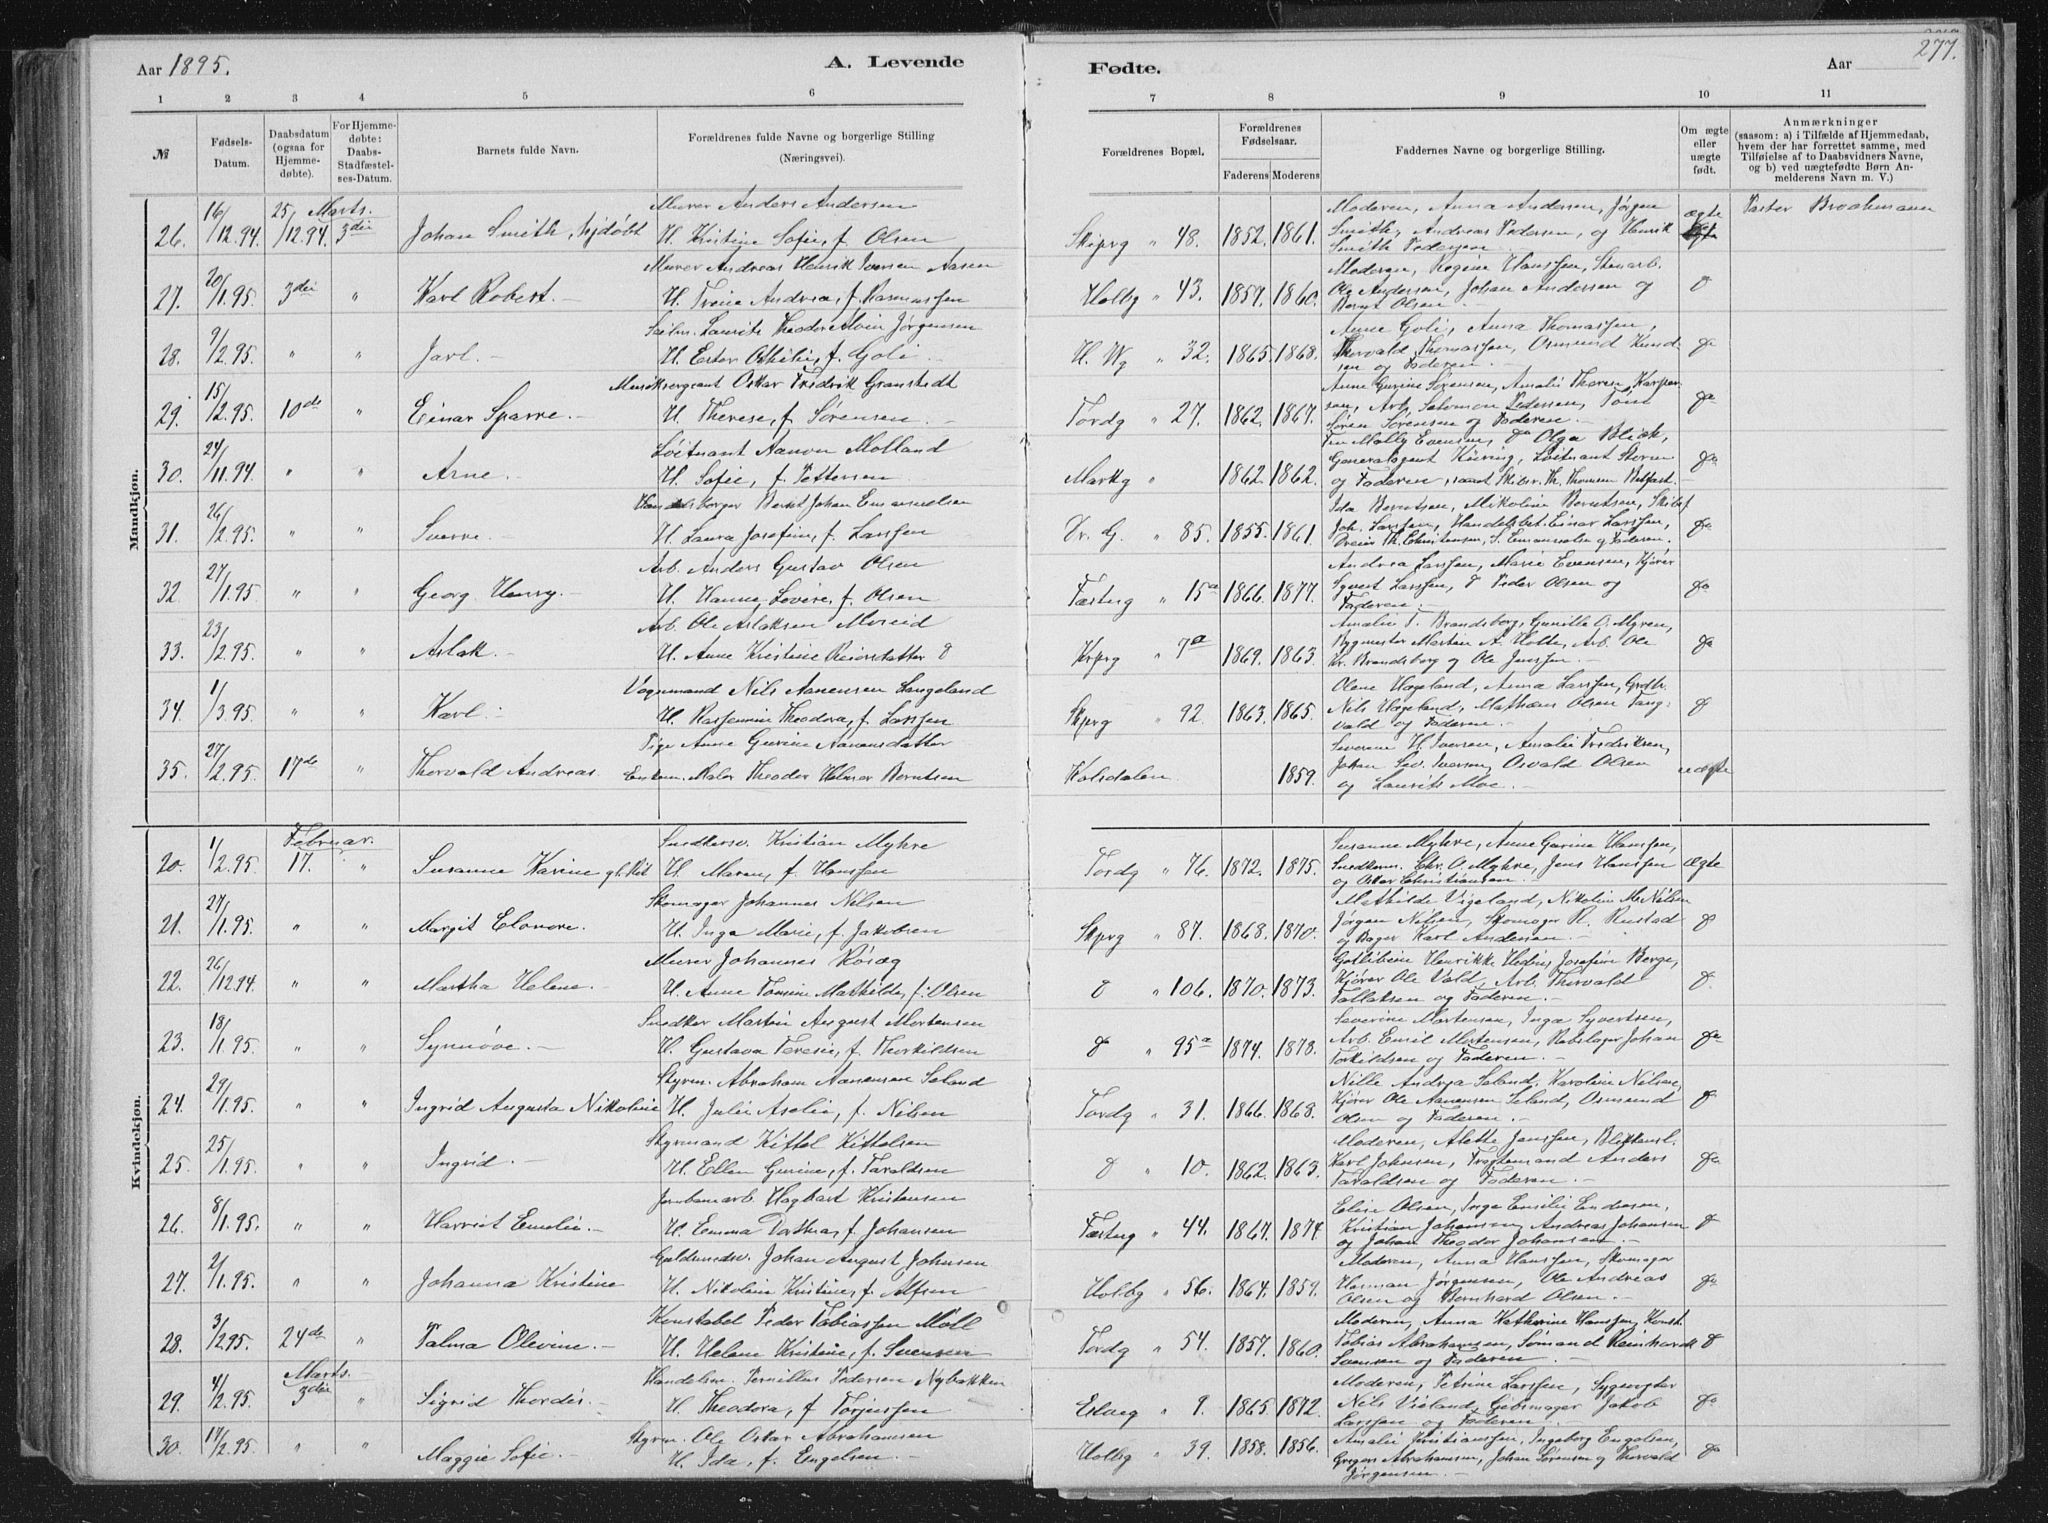 Aar 1895.
A. Levende
Fødte.
Aar
277.
1 2 3 4 5 6 7 8 9 10 11
№
Fødsels-Datum.
Daabsdatum (ogsaa for Hjemmedøbte).
For Hjemmedøbte: Daabs-Stadfæstelses-Datum.
Barnets fulde Navn.
Forældrenes fulde Navne og borgerlige Stilling (Næringsvei).
Forældrenes Bopæl.
Forældrenes Fødselsaar.
Faderens Moderens
Faddernes Navne og borgerlige Stilling.
Om ægte eller uægte født.
Anmærkninger
(saasom: a) i Tilfælde af Hjemmedaab, hvem der har forrettet samme, med Tilføielse af to Daabsvidners Navne, og b) ved uægtefødte Børn Anmelderens Navn m. V.)
Mandkjøn.
26. 16/12.94. 25/12.94. Marts. 3die Johan Smith, hjdøbt
Murer Anders Andersen
H. Kristine Sofie, f. Olsen
Skiprg " 48. 1852. 1861.
Moderen, Anna Andersen, Jørgen
Smith, Andreas Pedersen, og Henrik
Smith Pedersen
ægte
Pastor Brockmann
27. 20/1.95. 3die " Karl Robert.
Murer Andreas Henrik Iversen Aasen
H. Trine Andrea, f. Rasmussen
Holbg " 43. 1859. 1860.
Moderen, Regine Hanssen, Stenarb.
Ole Andersen, Johan Andersen og
Bernt Olsen
28. 9/2.95. " " Jarl.
Seilm. Laurits Theodor Alvin Jørgensen
H. Ester Othilie, f. Goli
H. Wg " 32. 1865. 1868.
Anne Goli, Anna Thomassen,
Thorvald Thomassen, Osmund Knudsen og Faderen.
29. 15/2.95. 10de " Einar Sparre.
Musiksergeant Oskar Fredrik Granstedt
H. Therese, f. Sørensen
Tordg " 27. 1862. 1867.
Anne Gurine Sørensen, Amalie Thoren Kaspersen, Arb. Salomon Pedersen, Tøm.
Søren Sørensen og Faderen.
30. 24/11.94. " " Arne.
Løitnant Aanon Molland
H. Sofie, f. Pettersen
Markg " 1862. 1862.
Frk Molly Evensen, do Olga Blick,
Generalagent Kiering, Løitnant Storm
og Faderen, samt Skibsr. Th. Thomsen Belfast.
31. 26/2.95. " " Sverre.
Handelsborger Bernt Johan Emanuelsen
H. Laura Josefine, f. Larssen
Dr. G. " 85. 1855. 1861.
Ida Berntsen, Nikoline Berntsen, Skibsf
Joh. Larssen, Handelsbet. Einar Larssen,
Dreier Th. Christensen, S. Emanuelsen og Faderen.
32. 27/1.95. " " Georg Henry.
Arb. Anders Gustav Olsen
H. Hanne Lovise, f. Olsen
Fæstng " 15a 1866. 1877.
Andrea Larssen, Marie Evensen, Kjører
Syvert Larssen, do Peder Olsen og
Faderen.
33. 23/2.95. " " Aslak.
Arb. Ole Aslaksen Moseid
H. Anne Kristine Reiersdatter
Krprg " 7a 1869. 1863.
Amalie T. Brandsberg, Gunille O. Myren,
Bygmester Martin A. Holte, Arb. Ole
Kr. Brandsberg og Ole Jenssen.
34. 1/3.95. " " Karl.
Vognmand Nils Aanensen Langeland
H. Rasmine Theodora, f. Larssen
Skprg " 92. 1863. 1865.
Olene Hægeland, Anna Larssen, Grdbr.
Nils Hægeland, Mathæus Olsen Tangvald og Faderen.
35. 27/2.95. 17de " Thorvald Andreas.
Pige Anne Gurine Aanensdatter
Enkem. Maler Theodor Helmer Berntsen
Kolsdalen 1859.
Severine H. Iversen, Amalie Fredriksen,
Johan Sev. Iversen, Osvald Olsen
og Laurits Moe.
uægte
Kvindekjøn.
20. 1/2.95. Februar. 17. " Susanne Karine
Snedkersv. Kristian Myhre
H. Maren, f. Hanssen
Tordg " 76. 1872. 1875.
Susanne Myhre, Anne Gurine Hanssen,
Snedkerm. Chr. O. Myhre, Jens Hanssen
og Oskar Christiansen.
ægte
21. 27/1.95. " " Margit Elonore.
Skomager Johannes Nilsen
H. Inga Marie, f. Jakobsen
Skprg " 87. 1868. 1870.
Mathilde Vigeland, Nikoline M. Nilsen
Jørgen Nilsen, Skomager R. Rustad
og Bager Karl Andersen.
22. 26/12.94. " " Martha Helene.
Murer Johannes Rosæg
H. Anne Tomine Mathilde, f. Olsen
do " 106. 1870. 1873.
Gotlibine Henrikke Hedin, Josefine Berge,
Kjører Ole Vald, Arb. Thorvald
Tallaksen og Faderen.
23. 18/1.95. " " Synnøve.
Snedker Martin August Mortensen
H. Gustava Terese, f. Thorkildsen
do " 95a 1874. 1878.
Severine Mortensen, Inga Syvertsen,
Arb. Emil Mortensen, Rebslager Johan
Torkildsen og Faderen.
24. 29/1.95. " " Ingrid Augusta Nikoline
Styrm. Abraham Aanensen Seland
H. Julie Aselie, f. Nilsen
Tordg " 31. 1866. 1868.
Nille Andrea Seland, Karoline Nilsen,
Kjører Ole Aanensen Seland, Osmund
Olsen og Faderen.
25. 25/1.95. " " Ingrid.
Styrmand Kittel Kittelsen
H. Ellen Gurine, f. Taraldsen
do " 10. 1862. 1863.
Moderen, Alette Janssen, Blikkensl.
Karl Johnsen, Fragtemand Anders
Taraldsen og Faderen.
26. 8/1.95. " " Harriet Emelie.
Jernbanearb. Hagbart Kristensen
H. Emma Dorthea, f. Johansen
Fæstng " 44. 1867. 1874.
Elise Olsen, Inga Emilie Endresen,
Kristian Johansen, Andreas Johansen
og Johan Theodor Johansen.
27. 2/1.95. " " Johanna Kristine
Guldsmedsv. Johan August Johnsen
H. Nikoline Kristine, f. Alfsen
Holbg " 56. 1864. 1859.
Moderen, Anna Hanssen, Skomager
Herman Jørgensen, Ole Andreas
Olsen og Bernhard Olsen.
28. 3/2.95. 24de " Palma Olevine.
Konstabel Peder Tobiassen Møll
H. Helene Kristine, f. Svensen
Tordg " 54. 1857. 1860.
Moderen, Anna Kathrine Hanssen, Konst.
Tobias Abrahamsen, Sømand Reinhardt
Svensen og Faderen.
29. 4/2.95. Marts. 3die " Sigrid Thordis.
Handelsm. Pernillus Pedersen Nybakken
H. Theodora, f. Torjussen
Elveg " 9. 1865. 1872.
Moderen, Petrine Larssen, Sygevogter
Nils Vieland, Gjebsmager Jakob
Larssen og Faderen.
30. 17/2.95. " " Maggie Sofie.
Styrm. Ole Oskar Abrahamsen
H. Ida, f. Engelsen.
Holbg " 39. 1858. 1856.
Amalie Kristianssen, Ingeborg Engelsen,
Gregers Abrahamsen, Johan Sørensen og Thorvald
Jørgensen.